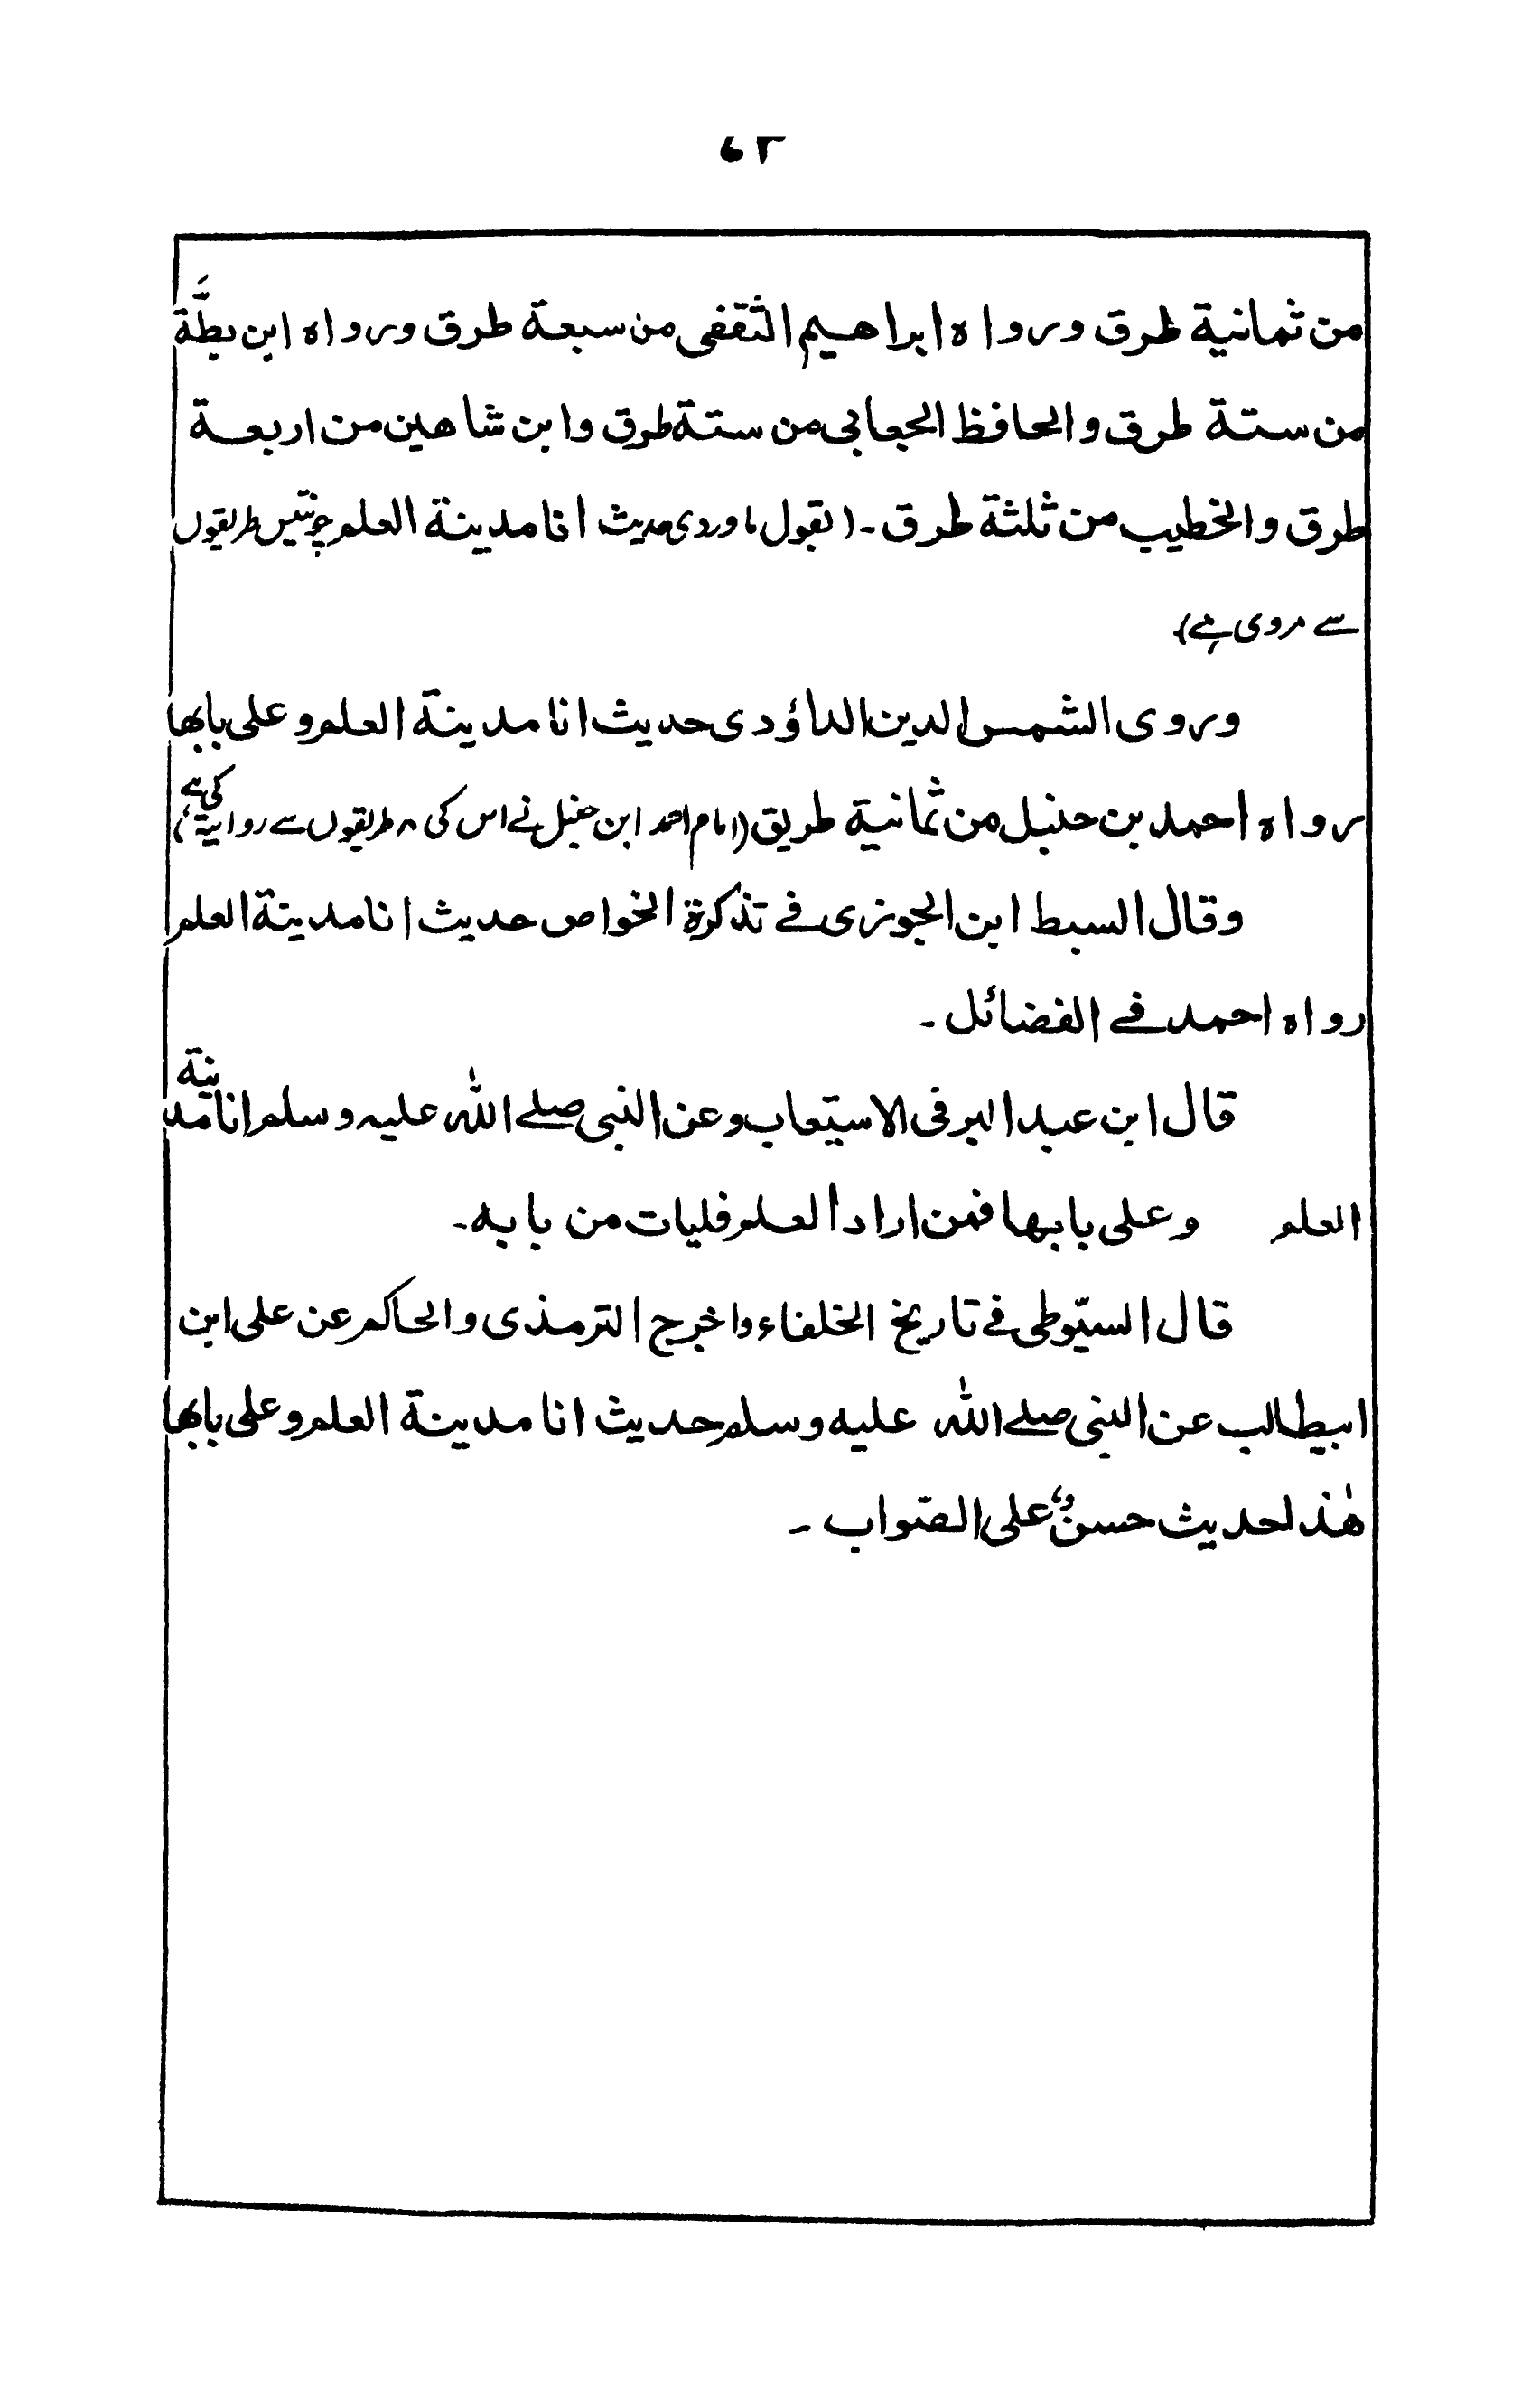 ۶۲
من ثمانية طرق ورواه ابراهيم الثقفى من سبعة طرق ورواه ابن بطَّةَ
من ستة طرق والحافظ الجعابى من ستة طرق وابن شاهين من اربعة
طرق والخطيب من ثلثة طرق۔ (بقول ماوردی حدیث انا مدينة العلم چونتیس طریقوں
سے مروی ہے)
وروى الشمس الدين الداؤدى حديث انا مدينة العلم وعلى بابها
رواه احمد بن حنبل من ثمانية طريق (امام احمد ابن حنبل نے اس کی ۸ طریقوں سے روایتہ کی ہے)
وقال السبط ابن الجوزى فے تذكرة الخواص حديث انا مدينة العلم
رواه احمد فے الفضائل۔
قال ابن عبد البر فى الاستيعاب وعن النبى صلے الله عليه وسلم انا مدينة
العلم وعلى بابها فمن اراد العلم فليات من بابه۔
قال السيّوطى فے تاريخ الخلفاء واخرج الترمذى والحاكم عن على ابن
ابيطالب عن النبى صلے الله عليه وسلم حديث انا مدينة العلم وعلى بابها
هٰذ لحديث حسنٌ على الصّواب۔